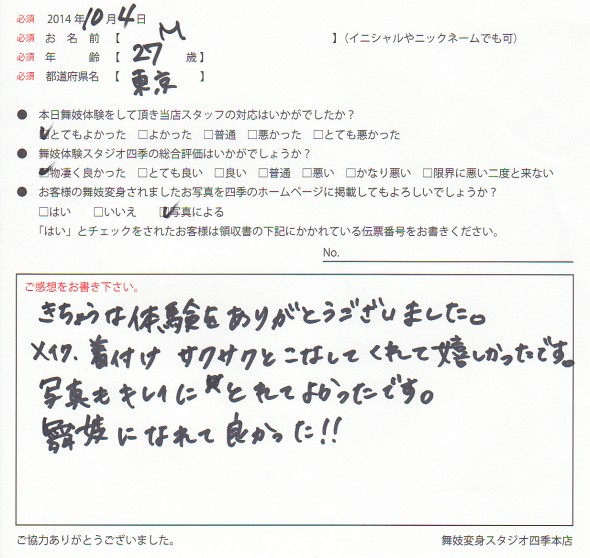 必須 2014年10月4日
必須 お名前【 M 】（イニシャルやニックネームでも可）
必須 年齢【 27 歳】
必須 都道府県名【 東京 】
● 本日舞妓体験をして頂き当店スタッフの対応はいかがでしたか？
☑とてもよかった □よかった □普通 □悪かった □とても悪かった
● 舞妓体験スタジオ四季の総合評価はいかがでしょうか？
☑物凄く良かった □とても良い □良い □普通 □悪い □かなり悪い □限界に悪い二度と来ない
● お客様の舞妓変身されましたお写真を四季のホームページに掲載してもよろしいでしょうか？
□はい □いいえ ☑写真による
「はい」とチェックをされたお客様は領収書の下記にかかれている伝票番号をお書きください。
No.
ご感想をお書き下さい。
きちょうな体験をありがとうございました。
メイク、着付け サクサクとこなしてくれて嬉しかったです。
写真もキレイにとれてよかったです。
舞妓になれて良かった!!
ご協力ありがとうございました。
舞妓変身スタジオ四季本店